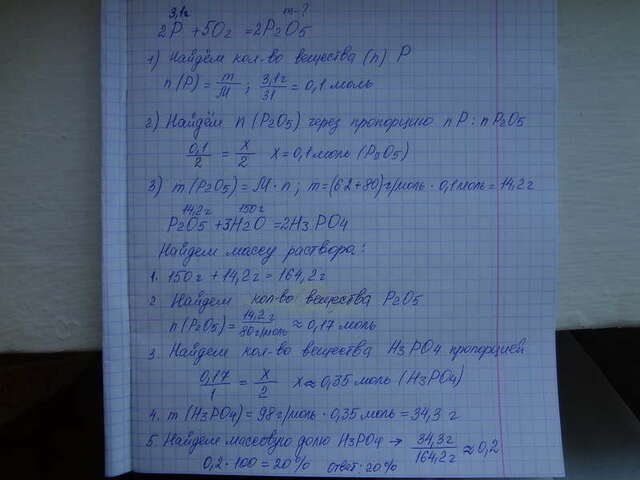 3,1г m-?
2P +5O2 =2P2O5
1) Найдём кол-во вещества (n) P
n(P)= m/M ; 3,1г/31 = 0,1 моль
2) Найдём n (P2O5) через пропорцию nP : nP2O5
0,1/2 = x/2 x=0,1моль (P2O5)
3) m(P2O5)= M·n ; m=(62+80)г/моль · 0,1моль=14,2г
14,2г 150г
P2O5 +3H2O =2H3PO4
Найдем массу раствора:
1. 150г +14,2г = 164,2г
2 Найдем кол-во вещества P2O5
n(P2O5)= 14,2г/80г/моль ≈ 0,17 моль
3. Найдем кол-во вещества H3PO4 пропорцией
0,17/1 = x/2 x≈0,35 моль (H3PO4)
4. m(H3PO4)=98г/моль · 0,35 моль =34,3 г
5. Найдем массовую долю H3PO4 → 34,3г/164,2г ≈ 0,2
0,2·100 =20% ответ: 20%